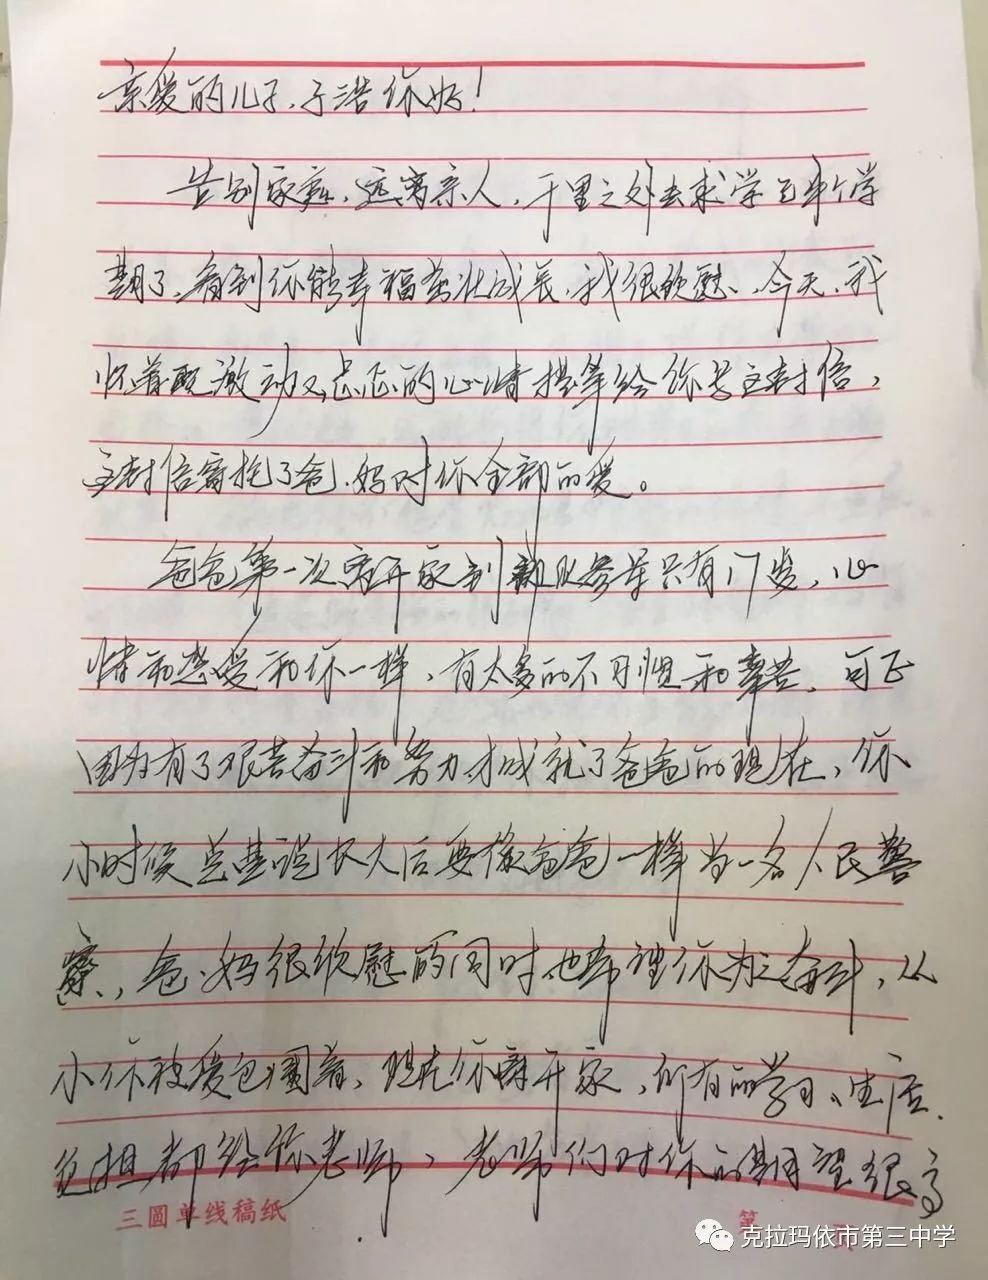 亲爱的儿子,子浩你好!
告别家乡、远离亲人,千里之外去求学已半个学
期了,看到你能幸福茁壮成长,我很欣慰、今天,我
怀着既激动又忐忑的心情提笔给你写这封信,
这封信寄托了爸、妈对你全部的爱。
爸爸第一次离开家到部队参军只有17岁,心
情和感受和你一样,有太多的不习惯和辛苦,可正
因为有了艰苦奋斗和努力,才成就了爸爸的现在,你
小时候总说长大后要像爸爸一样当一名人民警
察,爸、妈很欣慰的同时,也希望你为之奋斗,从
小你被爱包围着,现在你离开家,所有的学习、生活、
负担都给你老师,老师们对你的期望很高
三圆单线稿纸
第 页
克拉玛依市第三中学